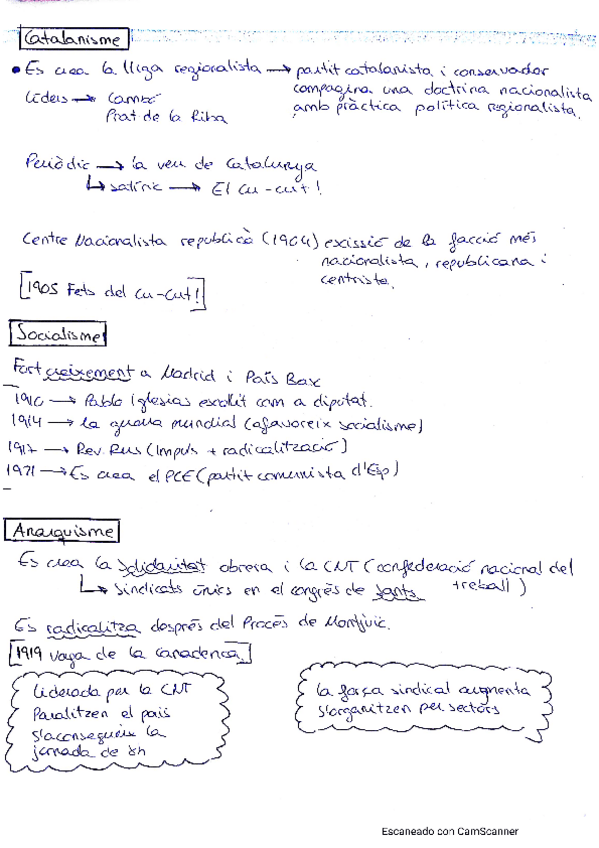 Catalanisme
• Es crea la lliga regionalista → partit catalanista i conservador
compagina una doctrina nacionalista
amb pràctica política regionalista.
Líders → Cambó
Prat de la Riba
Periòdic → la veu de Catalunya
↳ satíric → El cu-cut!
Centre Nacionalista republicà (1904) excissió de la facció més
nacionalista, republicana i
centriste.
[1905 Fets del cu-cut!]
Socialisme
Fort creixement a Madrid i País Basc
1910 → Pablo Iglesias escollit com a diputat.
1914 → la guerra mundial (afavoreix socialisme)
1917 → Rev. Rus (Impuls + radicalització)
1921 → Es crea el PCE (partit comunista d'Esp)
Anarquisme
Es crea la Solidaritat obrera i la CNT (confederació nacional del
treball)
↳ Sindicats únics en el congrés de Sants
Es radicalitza després del Procés de Montjuïc.
[1919 vaga de la canadenca]
Liderada per la CNT
Paralitzen el país
s'aconsegueix la
jornada de 8h
la força sindical augmenta
s'organitzen per sectors
Escaneado con CamScanner